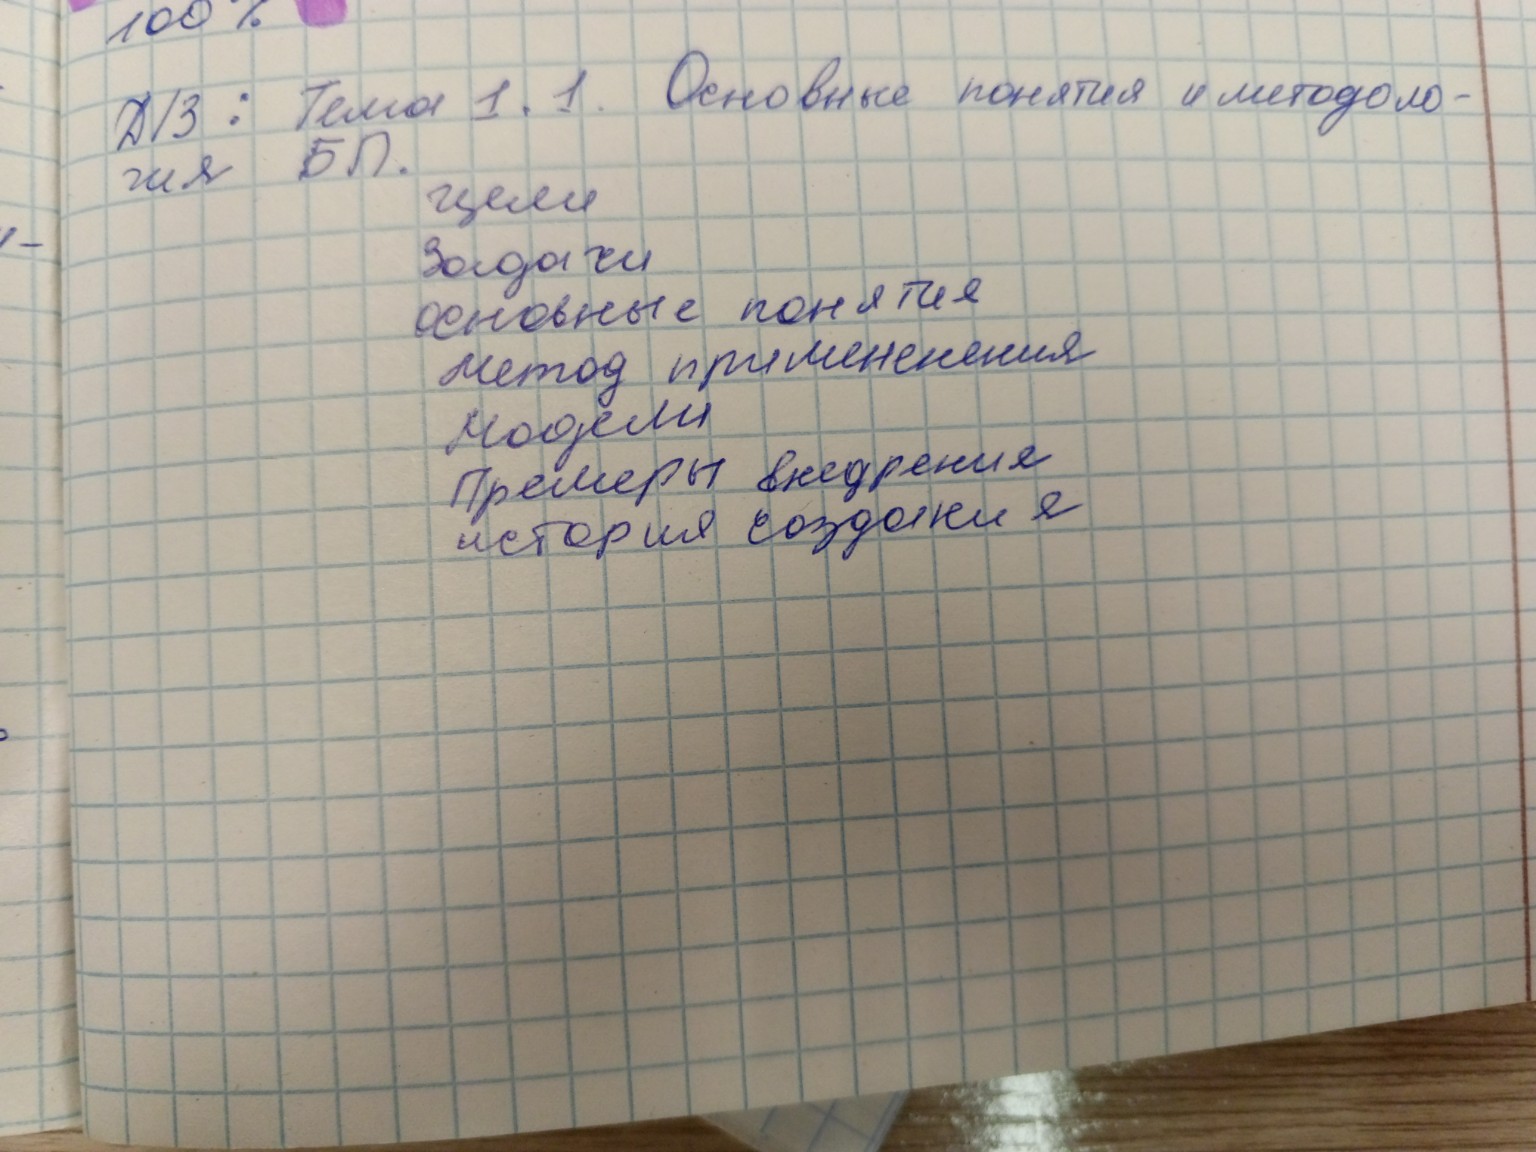 100%
Д/З: Тема 1.1. Основные понятия и методоло-
гия БП.
цели
Задачи
основные понятия
Метод применения
Модели
Премеры внедрения
история создания